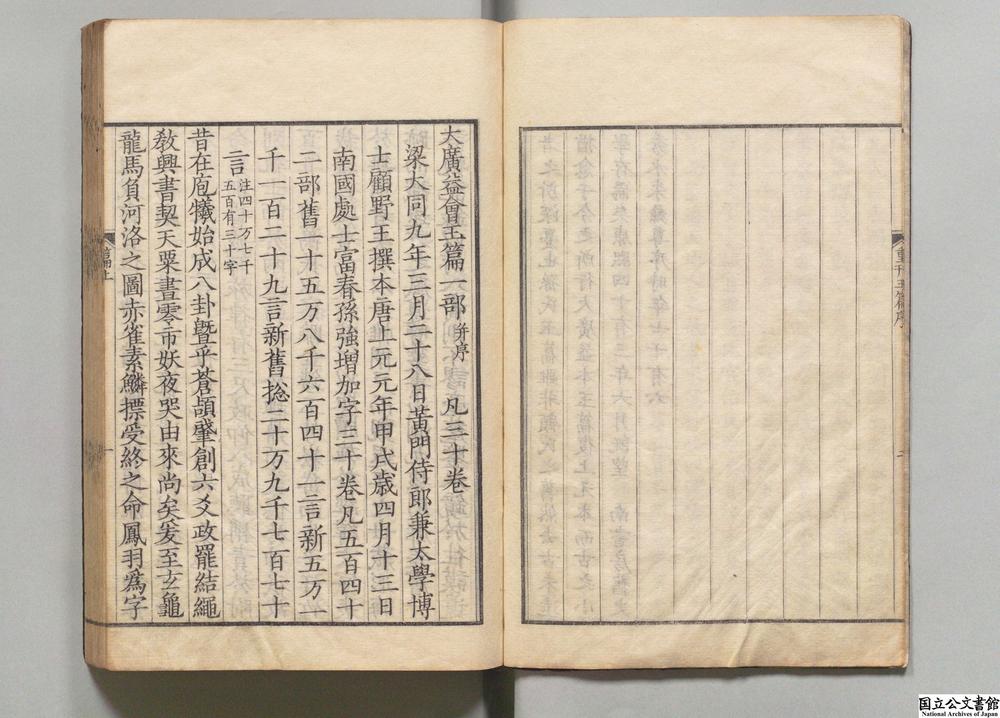 重刊玉篇序
大廣益會玉篇一部并序 凡三十卷
梁大同九年三月二十八日黃門侍郎兼太學博
士顧野王撰本唐上元元年甲戌歲四月十三日
南國處士富春孫強增加字三十卷凡五百四十
二部舊一十五万八千六百四十一言新五万一
千一百二十九言新舊捴二十万九千七百七十
言注四十万七千
五百有三十字
昔在庖犧始成八卦曁乎蒼頡肇創六爻政罷結繩
敎興書契天粟晝零市妖夜哭由來尚矣爰至玄龜
龍馬負河洛之圖赤雀素鱗摽受終之命鳳羽爲字
篇上
一
国立公文書館
National Archives of Japan